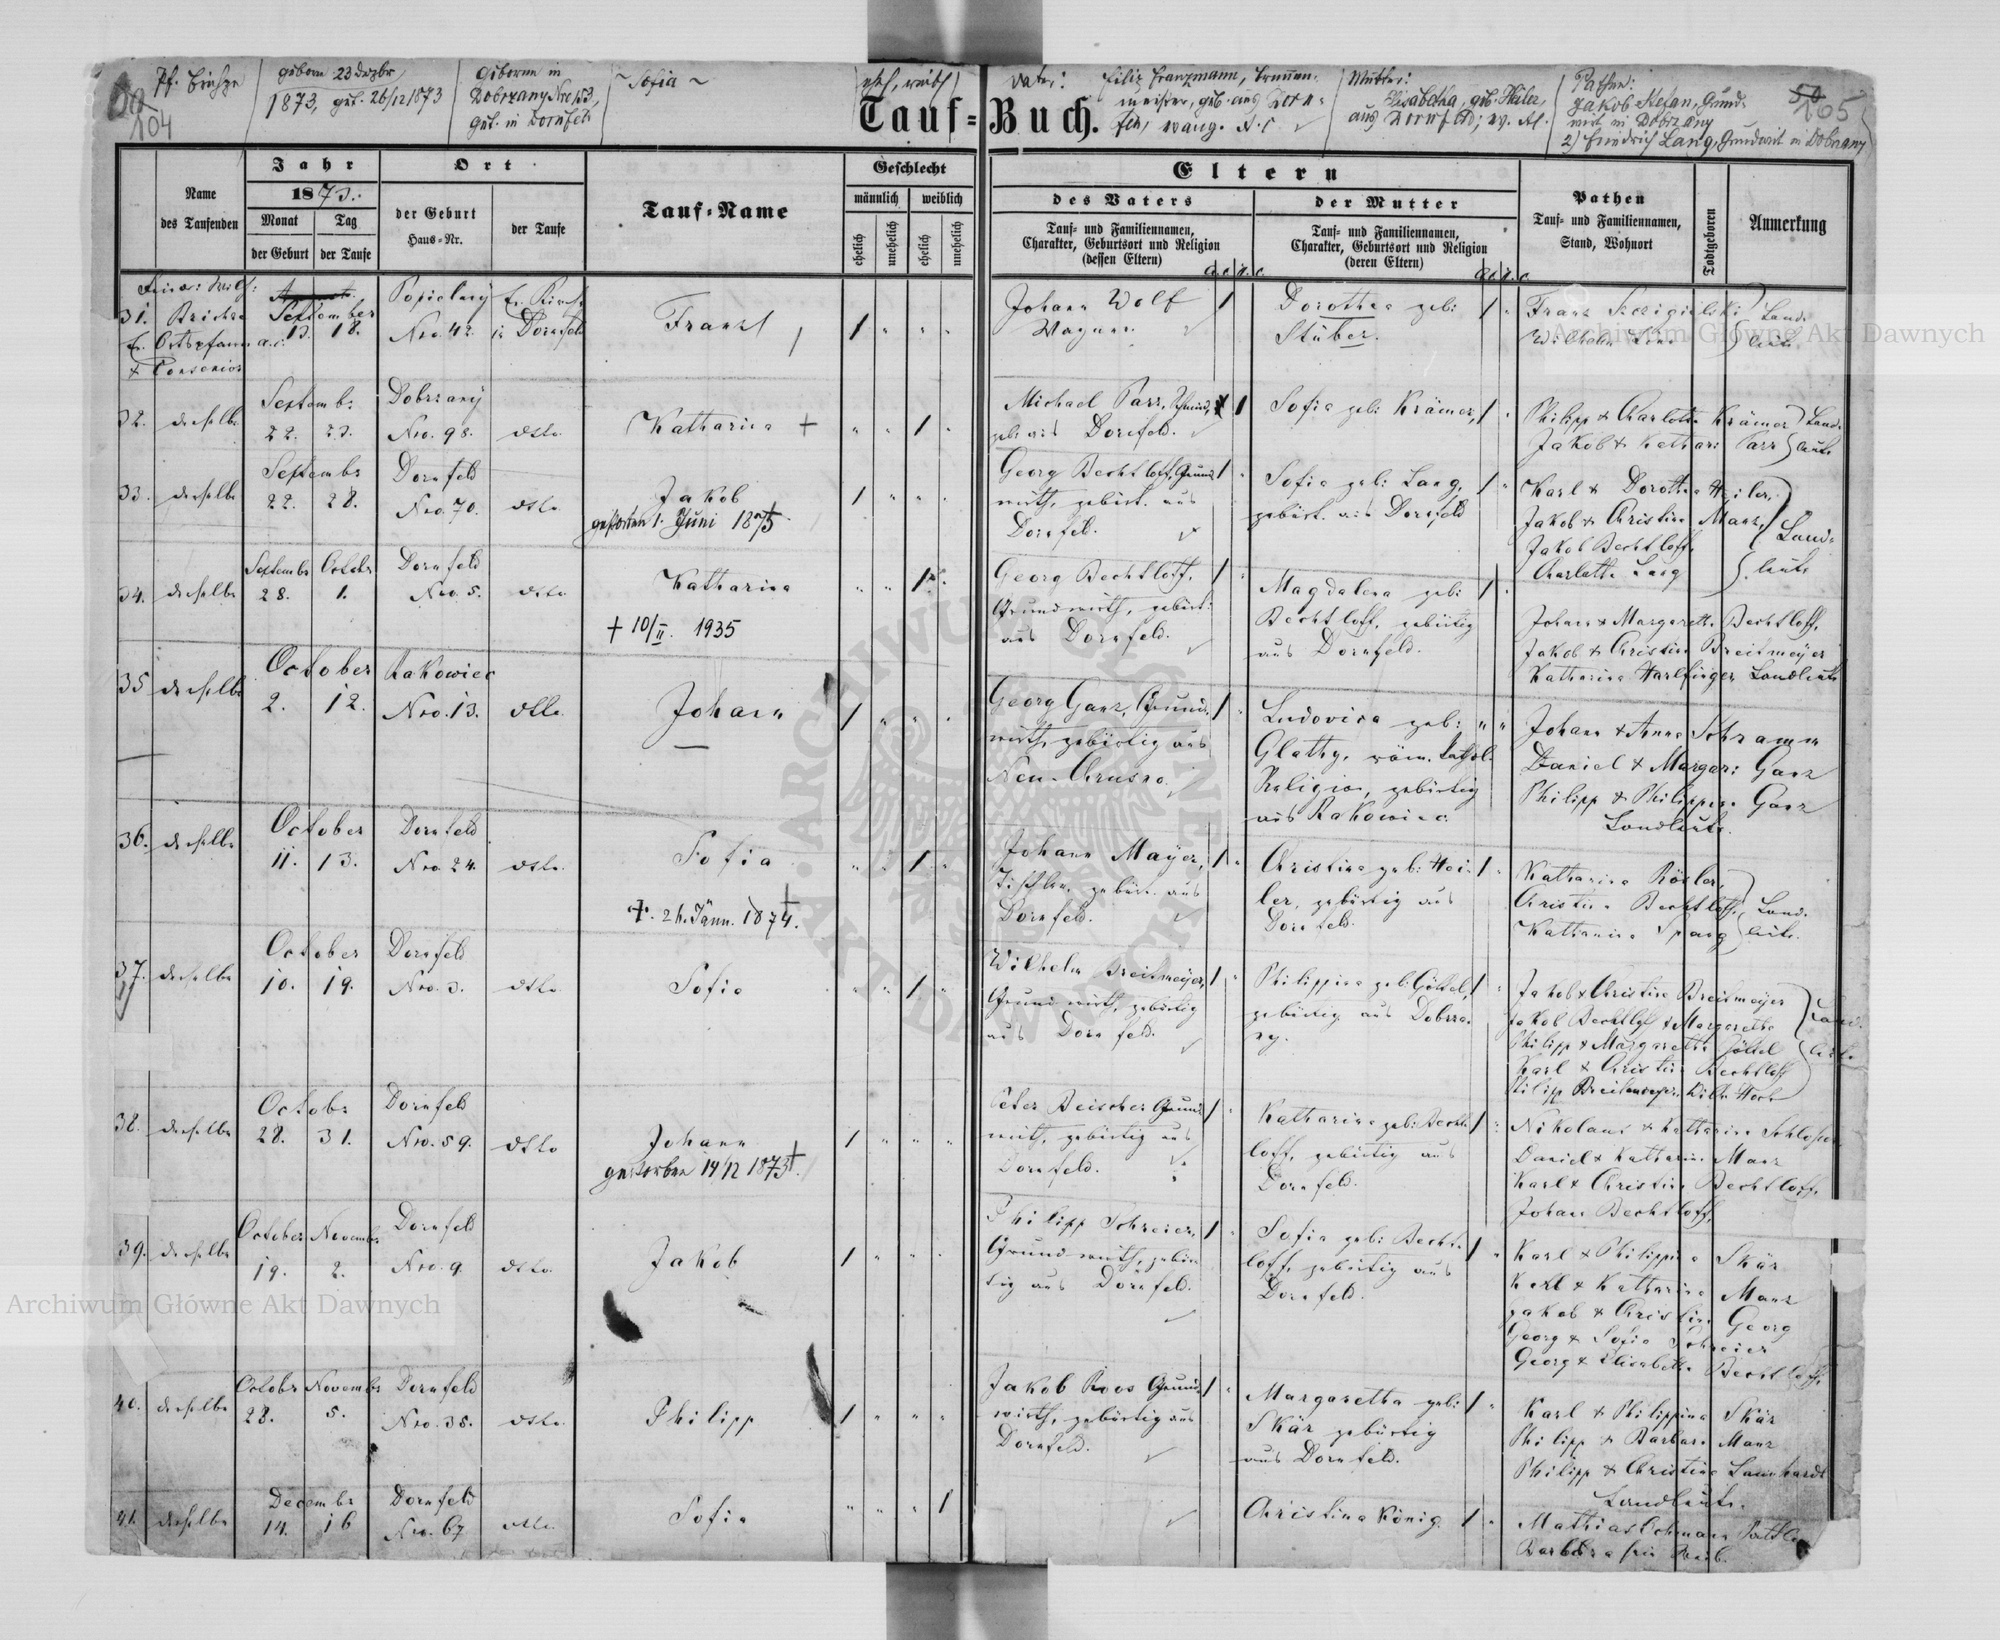 104
geboren 23 Dezbr
1873, get. 26/12 1873
Geboren in
Dobrzany Nro 153,
get. in Dornfeld
~ Sofia ~
ehel, weibl
Vater:
Filip Franzmann, Brunnen-
meister, geb. aus Dorn-
feld, evang. A. C.
Mutter:
Elisabetha, geb. Heiler,
aus Dornfeld; ev. A.
Pathen:
Jakob Stefan, Grund-
wirt in Dobrzany
2) Friedrich Lang, Grundwirt in Dobrzany
105
Tauf-Buch.
Name
des Taufenden
Jahr
1873.
Monat
Tag
der Geburt
der Taufe
Ort
der Geburt
Haus-Nr.
der Taufe
Tauf-Name
Geschlecht
männlich
weiblich
ehelich
unehelich
ehelich
unehelich
Eltern
des Vaters
Tauf- und Familiennamen,
Charakter, Geburtsort und Religion
(dessen Eltern)
der Mutter
Tauf- und Familiennamen,
Charakter, Geburtsort und Religion
(deren Eltern)
Pathen
Tauf- und Familiennamen,
Stand, Wohnort
Todtgeboren
Anmerkung
31.
September
13. 18.
Popielany
Nro. 42.
in Dornfeld
Franz
1
Johann Wolf
Wagner.
1
Dorothea geb:
Stuber.
1
Franz
Wilhelm
Land-
leute
32. derselbe
Septembr
22. 23.
Dobrzany
Nro. 98.
dtto.
Katharina +
1
Michael Parr, Schmied,
geb. aus Dornfeld.
1
Sofia geb: Krämer,
1
Philipp & Charlotte Krämer
Jakob & Kathari: Parr
Land-
leute
33. derselbe
Septembr
22. 28.
Dornfeld
Nro. 70.
dtto.
Jakob
gestorben 1. Juni 1875
1
Georg Bechtloff, Grund-
wirth, gebürt. aus
Dornfeld.
1
Sofia geb: Lang,
gebürt. aus Dornfeld
1
Karl & Dorothea Heiler,
Jakob & Christine Manz,
Jakob Bechtloff,
Charlotte Lang
Land-
leute
34. derselbe
Septembr Octobr
28. 1.
Dornfeld
Nro. 5.
dtto.
Katharina
+ 10/II. 1935
1
Georg Bechtloff,
Grundwirth, gebürt:
aus Dornfeld.
1
Magdalena geb:
Bechtloff, gebürtig
aus Dornfeld.
1
Johann & Margaretha Bechtloff,
Jakob & Christine Breitmeyer
Katharina Harlfinger Landleute
35 derselbe
October
2. 12.
Rakowiec
Nro. 13.
dtto.
Johann
1
Georg Ganz, Grund-
wirth, gebürtig aus
Neu-Chrusno.
1
Ludovica geb:
Glathy, röm. kathol.
Religion, gebürtig
aus Rakowiec.
Johann & Anna Schramm
Daniel & Margar: Ganz
Philipp & Philippine Ganz
Landleute.
36. derselbe
October
11. 13.
Dornfeld
Nro. 24.
dtto.
Sofia
+. 24. Jänn. 1874.
1
Johann Mayer,
Tischler, gebürt. aus
Dornfeld.
1
Christina geb: Hei-
ler, gebürtig aus
Dornfeld.
1
Katharina Rösler,
Christine Bechtloff,
Katharina Spang
Land-
leute.
37. derselbe
October
10. 19.
Dornfeld
Nro. 3.
dtto.
Sofia
1
Wilhelm Breitmeyer,
Grundwirth, gebürtig
aus Dornfeld.
1
Philippina geb: Göttel,
gebürtig aus Dobrza-
ny.
1
Jakob & Christine Breitmeyer
Jakob Bechtloff & Margaretha
Philipp & Margaretha Göttel
Karl & Christine Bechtloff
Philipp Breitmeyer,
Land-
leute
38. derselbe
Octobr
28. 31.
Dornfeld
Nro. 59.
dtto
Johann
gestorben 14/12 1873.
1
Peter Beischer Grund-
wirth, gebürtig aus
Dornfeld.
1
Katharina geb: Becht-
loff, gebürtig aus
Dornfeld.
1
Nikolaus & Katharina Schlosser
Daniel & Katharina Manz
Karl & Christine Bechtloff,
Johann Bechtloff,
39. derselbe
October November
19. 2.
Dornfeld
Nro. 9
dtto.
Jakob
1
Philipp Schreier,
Grundwirth, gebür-
tig aus Dornfeld.
1
Sofia geb: Becht-
loff, gebürtig aus
Dornfeld.
1
Karl & Philippina Skär
Karl & Katharina Manz
Jakob & Christine Georg
Georg & Sofia Schreier
Georg & Elisabeth Bechtloff,
40. derselbe
Octobr Novembr
28. 5.
Dornfeld
Nro. 35.
dtto.
Philipp
1
Jakob Roos Grund-
wirth, gebürtig aus
Dornfeld.
1
Margaretha geb:
Skär gebürtig
aus Dornfeld.
1
Karl & Philippina Skär
Philipp & Barbara Manz
Philipp & Christine Launhardt
Landleute.
41. derselbe
Decembr
14. 16
Dornfeld
Nro. 67
dtto.
Sofia
1
Christina König.
1
Mathias
Barbara sein Weib.
Archiwum Główne Akt Dawnych
Archiwum Główne Akt Dawnych
ARCHIWUM GŁÓWNE AKT DAWNYCH